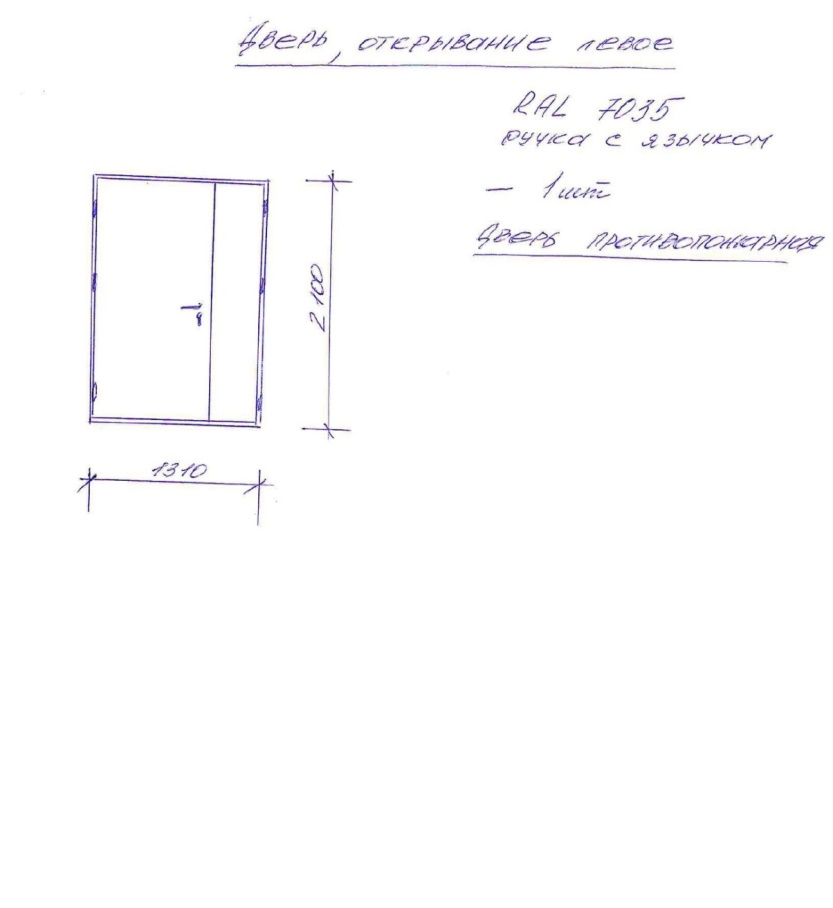 Дверь, открывание левое
RAL 7035
ручка с язычком
— 1 шт
Дверь противопожарная
2100
1310